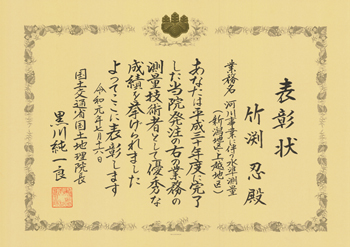 表彰状
竹渕忍殿
業務名 河川事業に伴う水準測量
(新潟地区・上越地区)
あなたは平成三十年度に完了
した当院発注の右の業務の
測量技術者として優秀な
成績を挙げられました
よってここに表彰します
令和元年七月十六日
国土交通省国土地理院長
黒川純一良